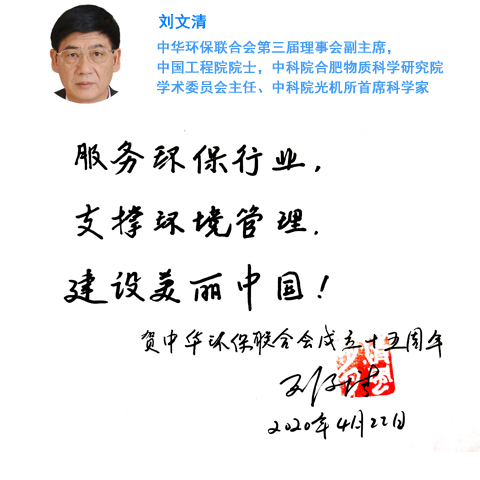 刘文清
中华环保联合会第三届理事会副主席，
中国工程院院士，中科院合肥物质科学研究院
学术委员会主任、中科院光机所首席科学家
服务环保行业，
支撑环境管理.
建设美丽中国！
贺中华环保联合会成立十五周年
刘文清
2020年4月22日